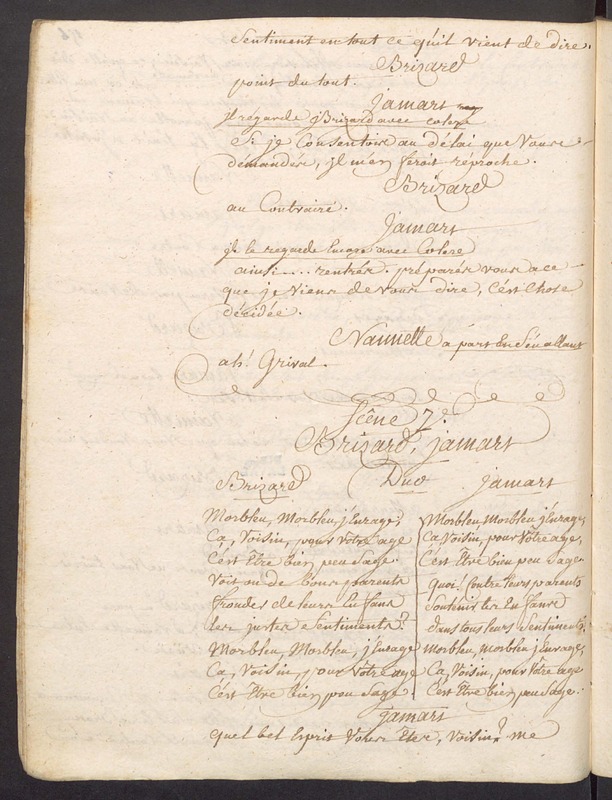 Sentiment en tout ce qu'il vient de dire.
Brizard
point du tout.
jamart
jl régarde Brizard avec colere
Si je Consentois au délai que Vous
demandés, jl m'en feroit réproche.
Brizard
au Contraire.
jamart
jl le regarde Encore avec Colere
ainsi.... rentrés. préparés vous a ce
que je Viens de Vous dire, C'est chose
décidée.
Nannette a part En S'en allant
ah! Grival.
Scêne 7e.
Brizard, jamart
Brizard Duo jamart
Morbleu, Morbleu, j'Enrage,
Ca, Voisin, pour Votre age
C'est Etre bien peu Sage.
Voit on de bons parents
frondes de leurs Enfans
les justes Sentiments?
Morbleu, Morbleu, j'Enrage
Ca, Voisin, pour Votre age
C'est Etre bien peu Sage
Morbleu, Morbleu, j'Enrage,
Ca, Voisin, pour Votre age,
C'est Etre bien peu Sage.
quoi! Contre leurs parents
Soutenir les Enfans
dans tous leurs Sentiments!
Morbleu, morbleu, j'Enrage,
Ca, Voisin, pour Votre age
C'est Etre bien peu Sage.
jamart
quel bel Esprit Vous Etes, Voisin? me